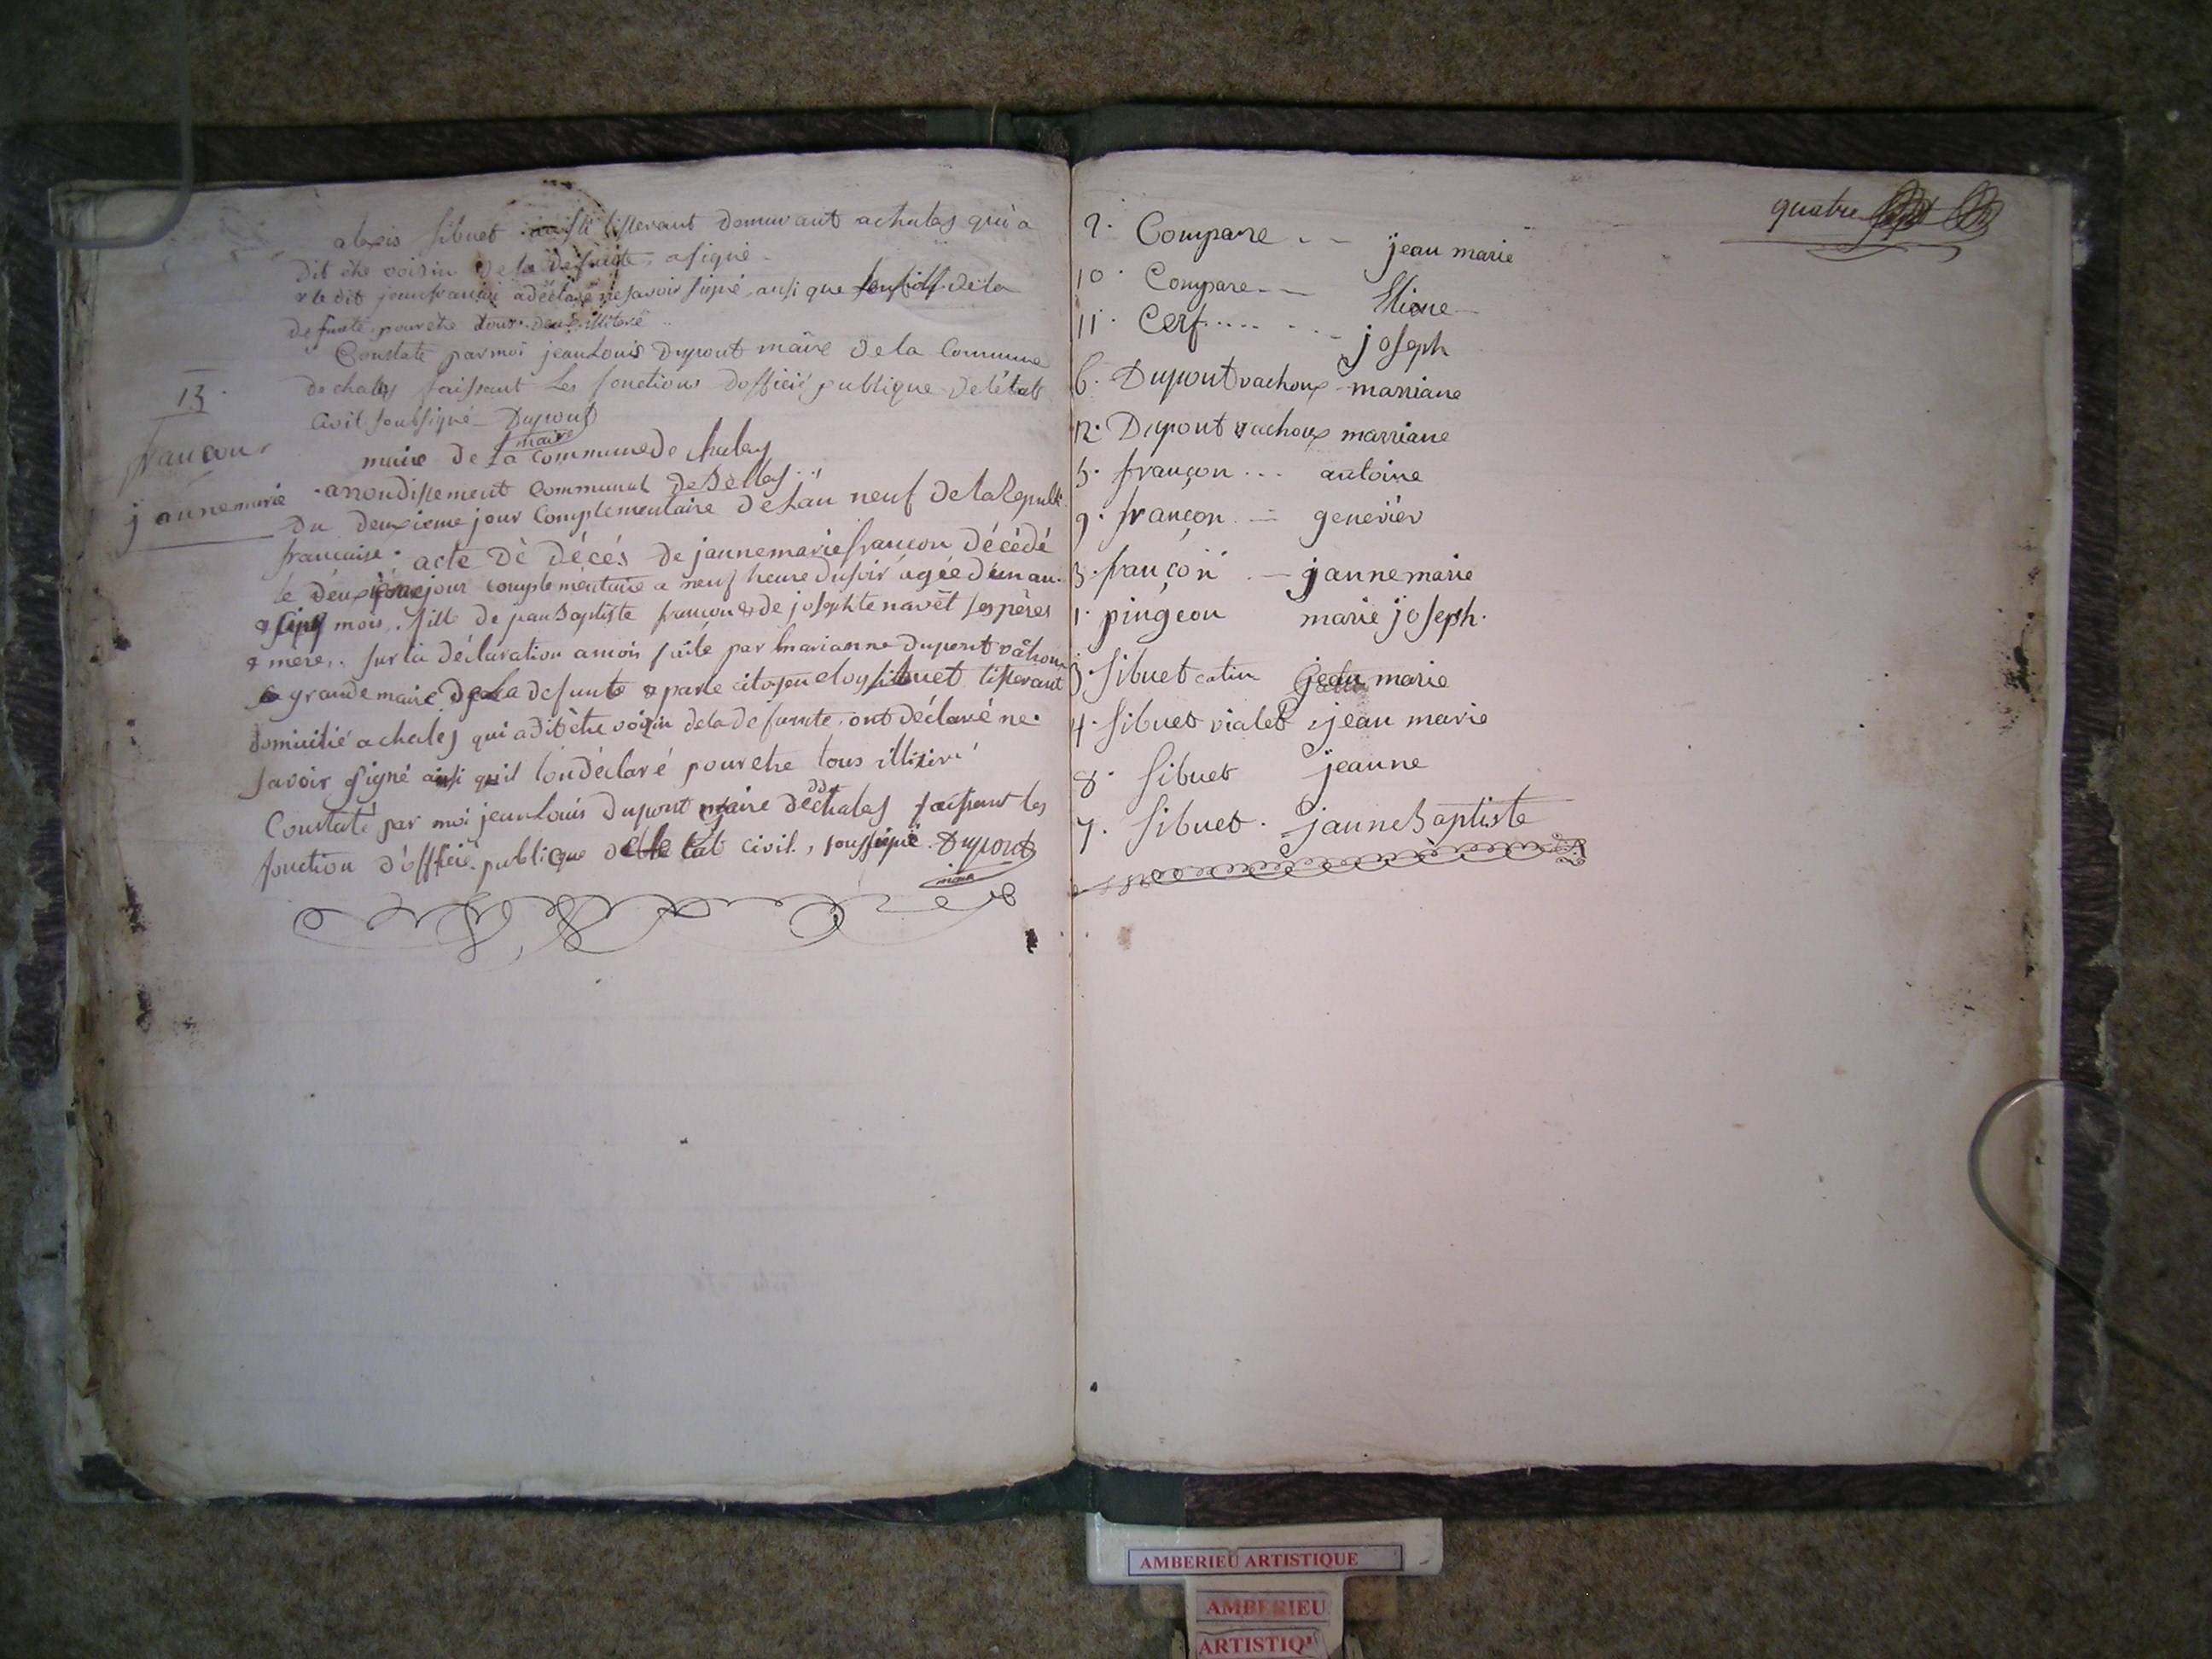 alexis sibuet tisserant demurant a chaley qui a
dit être voisin de la defunte, a signé.
& le dit jean françois a déclaré ne savoir signé, ausi que de la
defunte pour etre tous deux illiteré
Constate par moi jean Louis Dupont maire de la Commune
de chaley faissant Les fonctions dofficié publique de létat
Civil soubsigné Dupont
maire
13.
françon
jannemarie
maire de La Commune de chaley
arrondissement Communal de Belley
Du deuxieme jour Complementaire de Lan neuf de la Republi
francaise. acte de décés de jannemarie françon décédé
le deuxieme jour complémentaire a neuf heure du soir agée dun an.
& cinq mois, fille de jean Baptiste francon & de josephte navet ses pères
& mère,. sur la déclaration a moi faite par marianne Dupont vachoux
grande maire de La defunte & par le citoyen eloy sibuet tisserant
domicilié a chaley qui a dit être voisin de la defunte. ont déclaré ne.
savoir signé ainsi quil lon déclaré pour etre tous
Constaté par moi jean Louis dupont maire de chaley faissant les
fonction d'officié publique de le tat civil, soussigné Dupont
maire
quatre
2. Compare -- jean marie
10. Compare -- Etiene
11. Cerf ...... joseph
6. Dupont vachoux marriane
12. Dupont vachoux marriane
5. françon ... antoine
9. françon -- geneviev
3. françon -- jannemarie
1. pingeon marie joseph.
3. sibuet catin jean marie
4. sibuet vialet jean marie
8. sibuet jeanne
7. sibuet. janne Baptiste
AMBERIEU ARTISTIQUE
AMBERIEU
ARTISTIQ